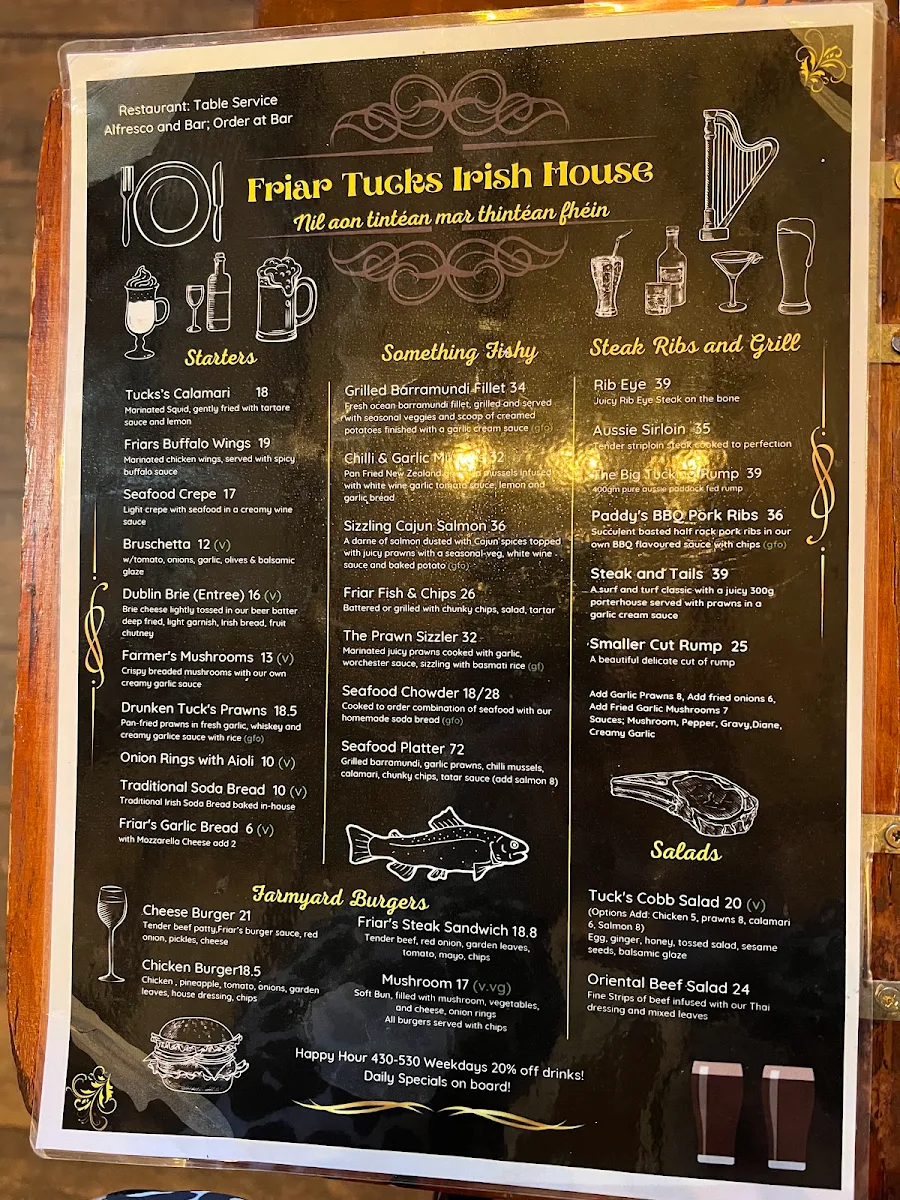 Restaurant: Table Service
Alfresco and Bar; Order at Bar
Friar Tucks Irish House
Nil aon tintéan mar thintéan fhéin
Starters
Tucks's Calamari 18
Marinated Squid, gently fried with tartare
sauce and lemon
Friars Buffalo Wings 19
Marinated chicken wings, served with spicy
buffalo sauce
Seafood Crepe 17
Light crepe with seafood in a creamy wine
sauce
Bruschetta 12 (v)
w/tomato, onions, garlic, olives & balsamic
glaze
Dublin Brie (Entree) 16 (v)
Brie cheese lightly tossed in our beer batter
deep fried, light garnish, Irish bread, fruit
chutney
Farmer's Mushrooms 13 (v)
Crispy breaded mushrooms with our own
creamy garlic sauce
Drunken Tuck's Prawns 18.5
Pan-fried prawns in fresh garlic, whiskey and
creamy garlice sauce with rice (gfo)
Onion Rings with Aioli 10 (v)
Traditional Soda Bread 10 (v)
Traditional Irish Soda Bread baked in-house
Friar's Garlic Bread 6 (v)
with Mozzarella Cheese add 2
Something Fishy
Grilled Barramundi Fillet 34
Fresh ocean barramundi fillet, grilled and served
with seasonal veggies and scoop of creamed
potatoes finished with a garlic cream sauce (gfo)
Chilli & Garlic 32
Pan Fried New Zealand mussels infused
with white wine garlic tomato sauce, lemon and
garlic bread
Sizzling Cajun Salmon 36
A darne of salmon dusted with Cajun spices topped
with juicy prawns with a seasonal veg, white wine
sauce and baked potato (gfo)
Friar Fish & Chips 26
Battered or grilled with chunky chips, salad, tartar
The Prawn Sizzler 32
Marinated juicy prawns cooked with garlic,
worchester sauce, sizzling with basmati rice (gf)
Seafood Chowder 18/28
Cooked to order combination of seafood with our
homemade soda bread (gfo)
Seafood Platter 72
Grilled barramundi, garlic prawns, chilli mussels,
calamari, chunky chips, tatar sauce (add salmon 8)
Steak Ribs and Grill
Rib Eye 39
Juicy Rib Eye Steak on the bone
Aussie Sirloin 35
Tender striploin steak cooked to perfection
The Big Tucking Rump 39
400gm pure aussie paddock fed rump
Paddy's BBQ Pork Ribs 36
Succulent basted half rack pork ribs in our
own BBQ flavoured sauce with chips (gfo)
Steak and Tails 39
A surf and turf classic with a juicy 300g
porterhouse served with prawns in a
garlic cream sauce
Smaller Cut Rump 25
A beautiful delicate cut of rump
Add Garlic Prawns 8, Add fried onions 6,
Add Fried Garlic Mushrooms 7
Sauces; Mushroom, Pepper, Gravy,Diane,
Creamy Garlic
Salads
Tuck's Cobb Salad 20 (v)
(Options Add: Chicken 5, prawns 8, calamari
6, Salmon 8)
Egg, ginger, honey, tossed salad, sesame
seeds, balsamic glaze
Oriental Beef Salad 24
Fine Strips of beef infused with our Thai
dressing and mixed leaves
Farmyard Burgers
Cheese Burger 21
Tender beef patty,Friar's burger sauce, red
onion, pickles, cheese
Chicken Burger18.5
Chicken , pineapple, tomato, onions, garden
leaves, house dressing, chips
Friar's Steak Sandwich 18.8
Tender beef, red onion, garden leaves,
tomato, mayo, chips
Mushroom 17 (v.vg)
Soft Bun, filled with mushroom, vegetables,
and cheese, onion rings
All burgers served with chips
Happy Hour 430-530 Weekdays 20% off drinks!
Daily Specials on board!